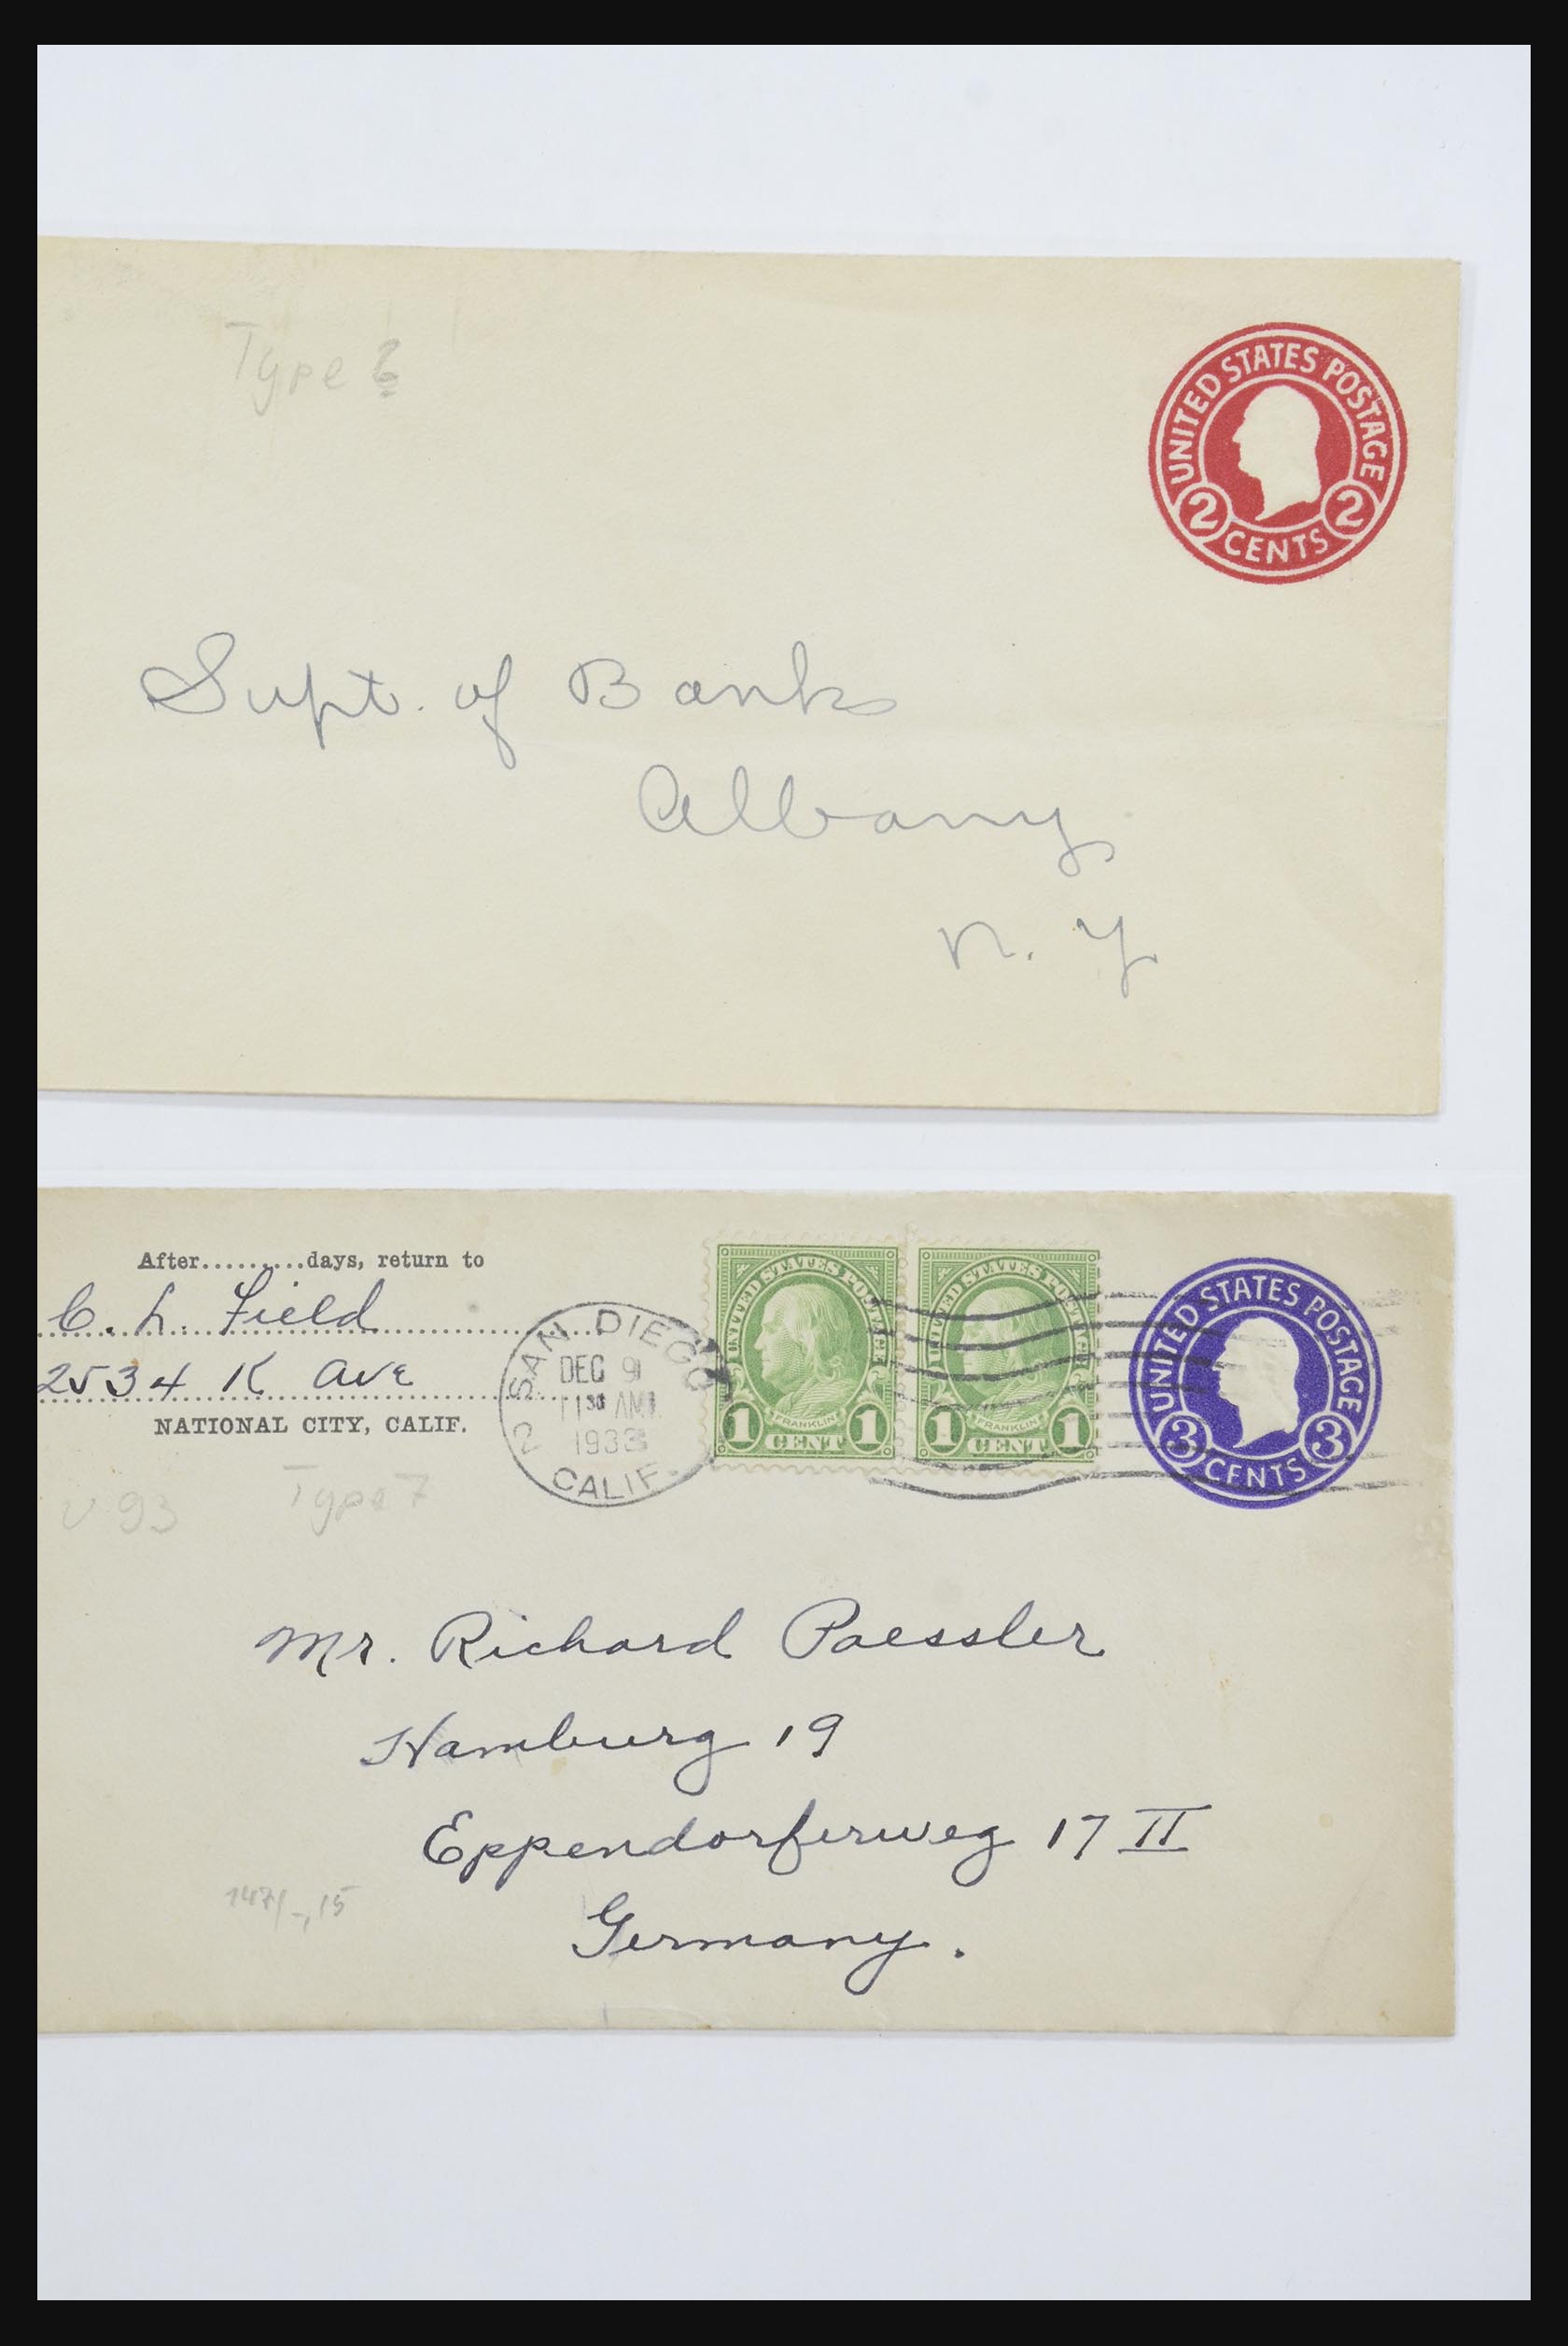 Type 6
UNITED STATES POSTAGE
2 CENTS 2
Supt. of Banks
Albany
N. Y
After..........days, return to
C. L. Field
2534 K Ave
NATIONAL CITY, CALIF.
SAN DIEGO
DEC 9
11 30 AM
1933
2 CALIF.
UNITED STATES POSTAGE
FRANKLIN
1 CENT 1
UNITED STATES POSTAGE
FRANKLIN
1 CENT 1
UNITED STATES POSTAGE
3 CENTS 3
U 93 Type 7
Mr. Richard Paessler
Hamburg 19
Eppendorferweg 17 II
Germany.
147/-,15